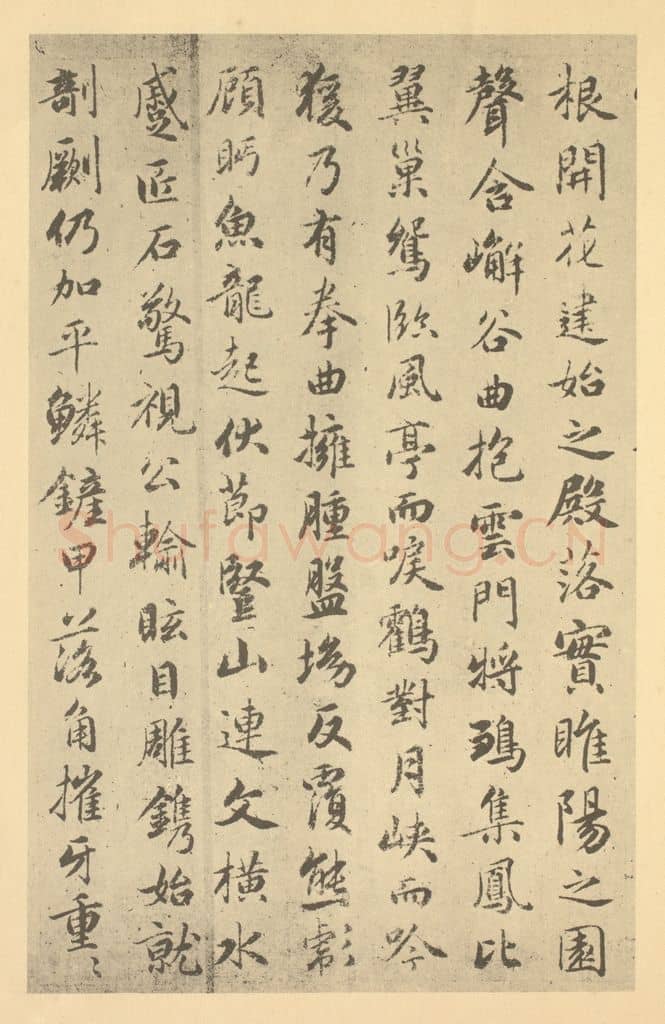 根開花建始之殿落實睢陽之園
聲含嶰谷曲抱雲門將鵷集鳳比
翼巢鴛臨風亭而唳鶴對月峽而吟
猨乃有拳曲擁腫盤坳反覆熊彪
顧眄魚龍起伏莭豎山連文橫水
蹙匠石驚視公輸眩目雕鐫始就
剞劂仍加平鱗鏟甲落角摧牙重〻
Shufawang.CN